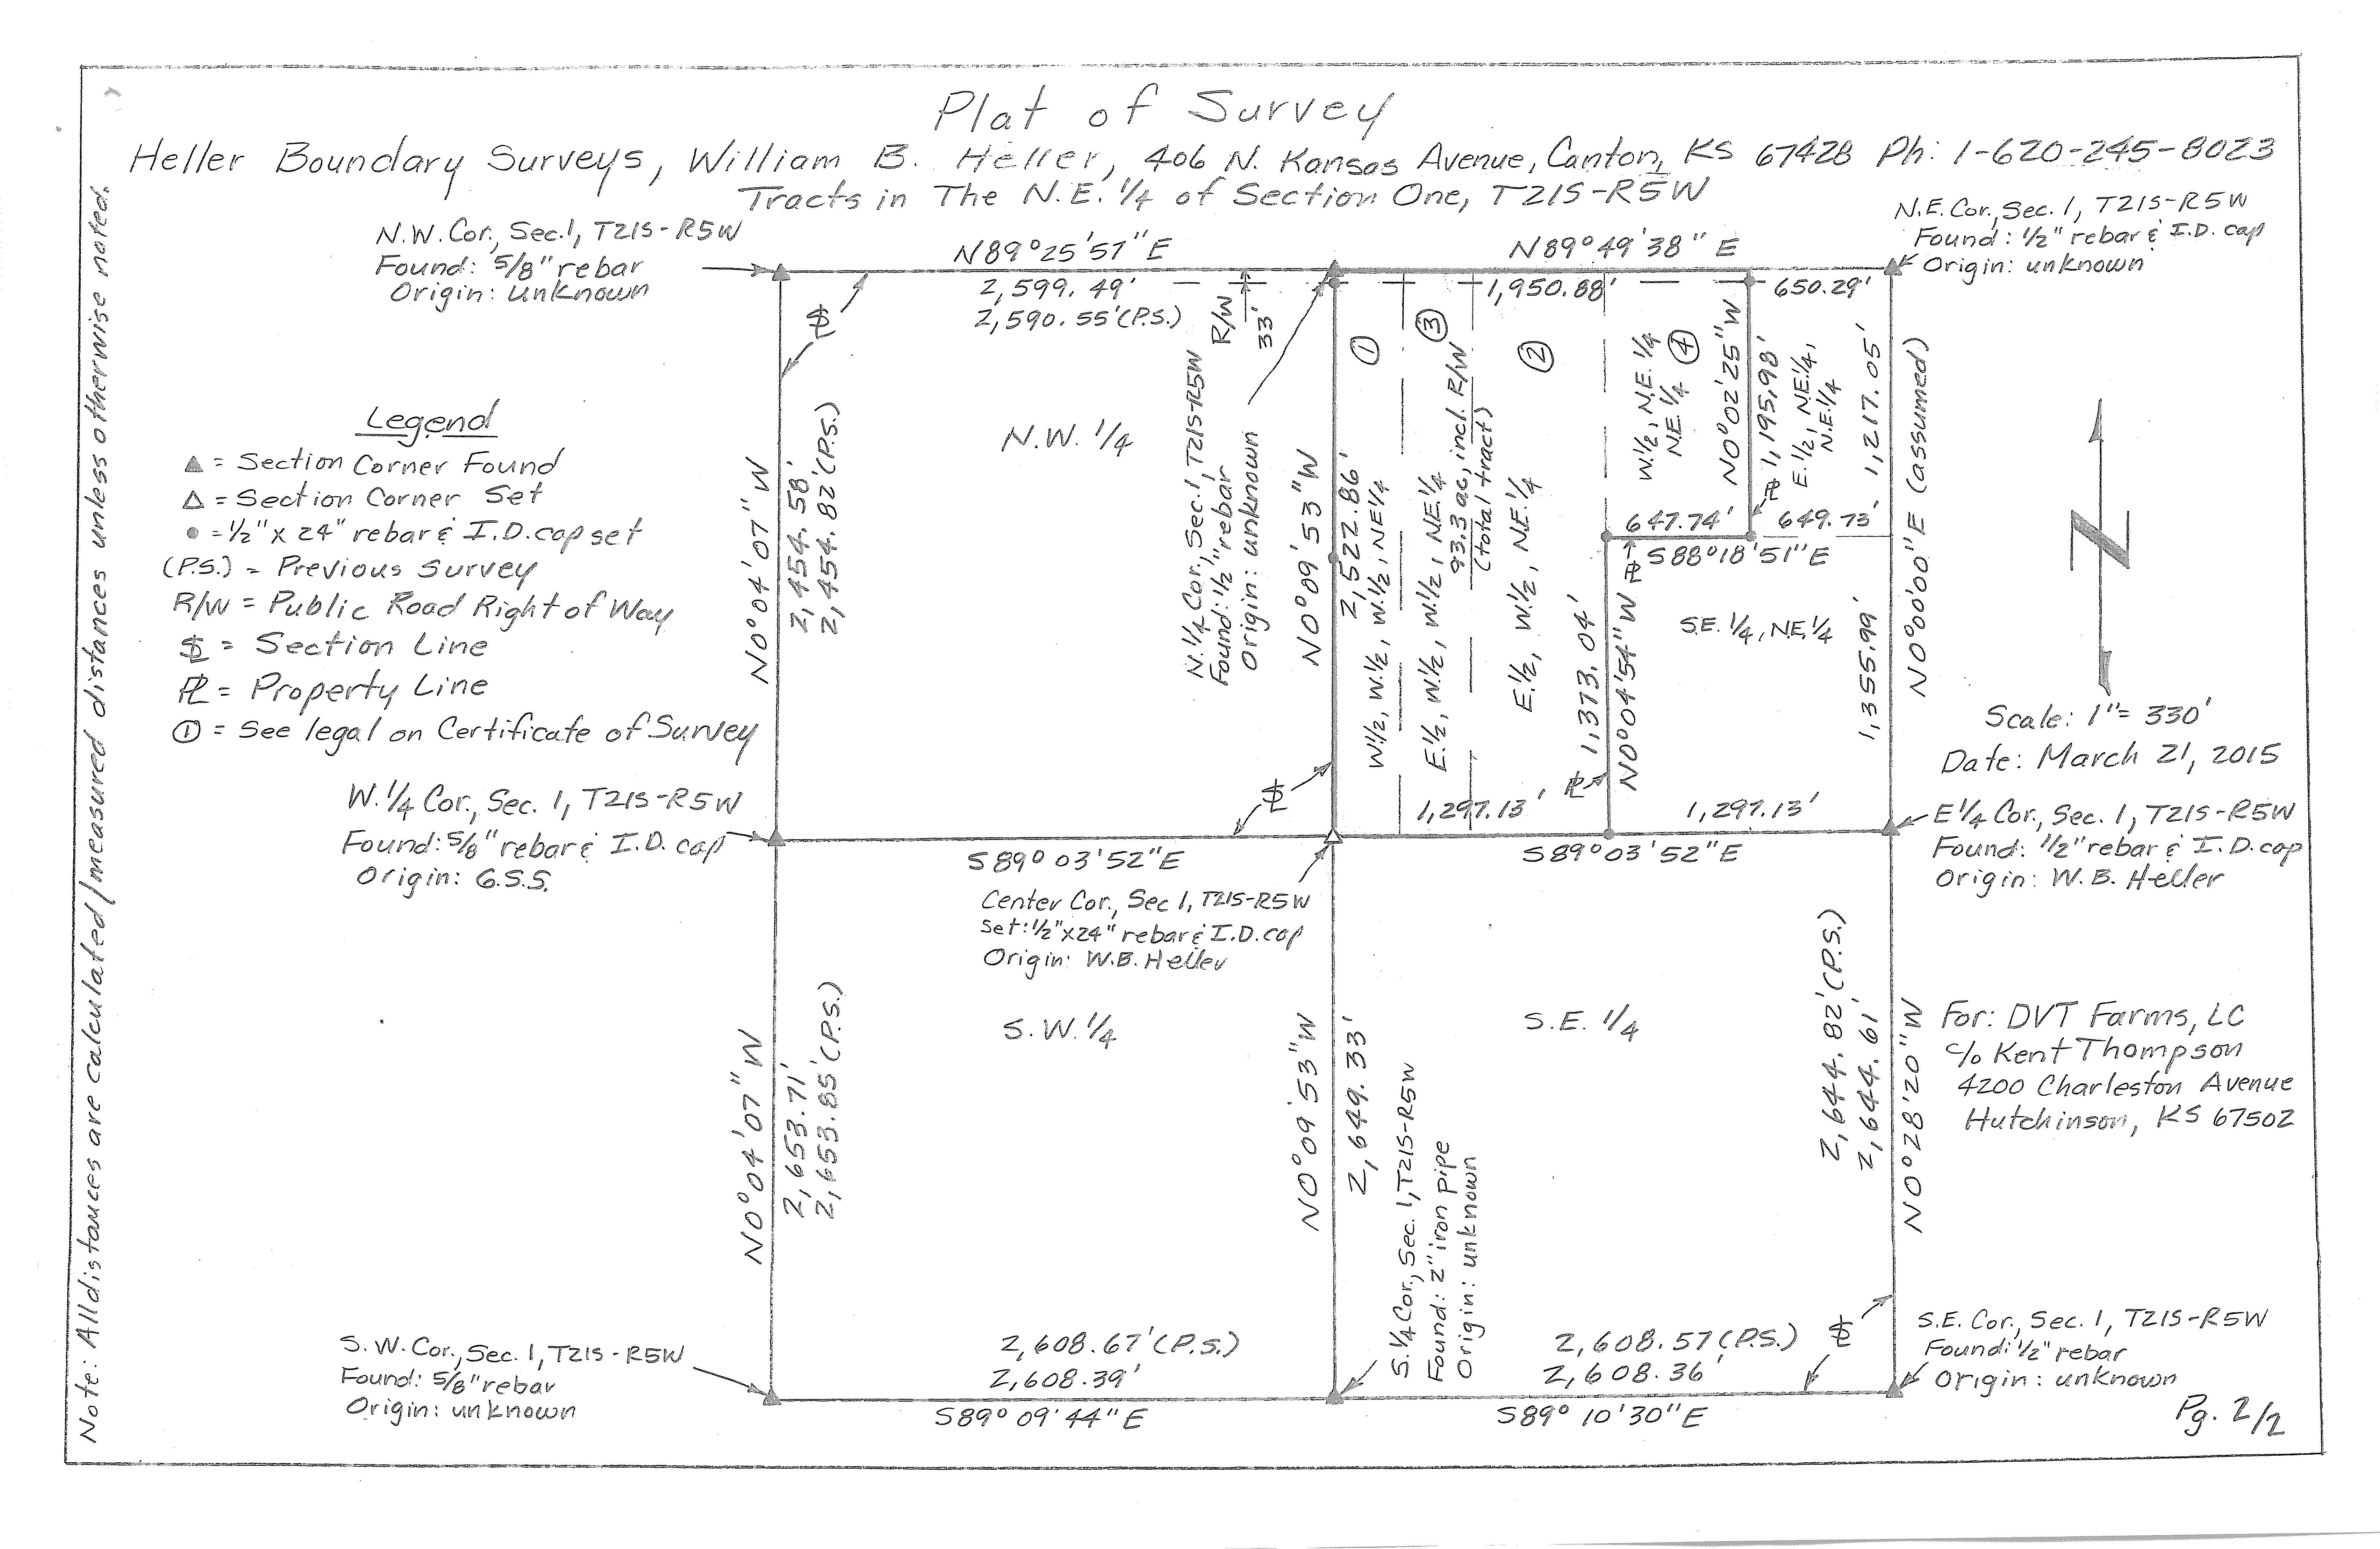 Plat of Survey
Heller Boundary Surveys, William B. Heller, 406 N. Kansas Avenue, Canton, KS 67428 Ph: 1-620-245-8023
Tracts in The N.E. 1/4 of Section One, T21S-R5W
Note: All distances are calculated/measured distances unless otherwise noted.
N.W. Cor., Sec. 1, T21S-R5W
Found: 5/8" rebar
Origin: unknown
N89°25'57"E
2,599.49'
2,590.55'(P.S.)
R/W
33'
N89°49'38"E
1,950.88'
650.29'
N.E. Cor., Sec. 1, T21S-R5W
Found: 1/2" rebar & I.D. cap
Origin: unknown
Legend
▲ = Section Corner Found
△ = Section Corner Set
● = 1/2" x 24" rebar & I.D. cap set
(P.S.) = Previous Survey
R/W = Public Road Right of Way
SL = Section Line
PL = Property Line
① = See legal on Certificate of Survey
SL
N0°04'07"W
2,454.58'
2,454.82'(P.S.)
N.W. 1/4
N.1/4 Cor., Sec. 1, T21S-R5W
Found: 1/2" rebar
Origin: unknown
N0°09'53"W
2,522.86'
①
W.1/2, W.1/2, W.1/2, NE1/4
③
E.1/2, W.1/2, W.1/2, NE.1/4
93.3 ac, incl. R/W
(total tract)
②
E.1/2, W.1/2, NE.1/4
W.1/2, N.E. 1/4
NE.1/4
④
N0°02'25"W
1,195.98'
PL
E.1/2, NE.1/4,
N.E.1/4
1,217.05'
N0°00'00"E (assumed)
647.74'
649.73'
S88°18'51"E
PL
S.E. 1/4, N.E.1/4
1,373.04'
N0°04'54"W
PL
1,355.99'
Scale: 1"= 330'
Date: March 21, 2015
SL
1,297.13'
1,297.13'
W.1/4 Cor., Sec. 1, T21S-R5W
Found: 5/8" rebar & I.D. cap
Origin: G.S.S.
S89°03'52"E
S89°03'52"E
E1/4 Cor., Sec. 1, T21S-R5W
Found: 1/2" rebar & I.D. cap
Origin: W.B. Heller
Center Cor., Sec 1, T21S-R5W
Set: 1/2"x24" rebar & I.D. cap
Origin: W.B. Heller
N0°04'07"W
2,653.71'
2,653.85'(P.S.)
S.W. 1/4
N0°09'53"W
2,649.33'
S.1/4 Cor., Sec. 1, T21S-R5W
Found: 2" iron pipe
Origin: unknown
S.E. 1/4
2,644.82'(P.S.)
2,644.61'
N0°28'20"W
For: DVT Farms, LC
c/o Kent Thompson
4200 Charleston Avenue
Hutchinson, KS 67502
S.W. Cor., Sec. 1, T21S-R5W
Found: 5/8" rebar
Origin: unknown
2,608.67'(P.S.)
2,608.39'
S89°09'44"E
2,608.57(P.S.)
2,608.36'
S89°10'30"E
SL
S.E. Cor., Sec. 1, T21S-R5W
Found: 1/2" rebar
Origin: unknown
Pg. 2/2